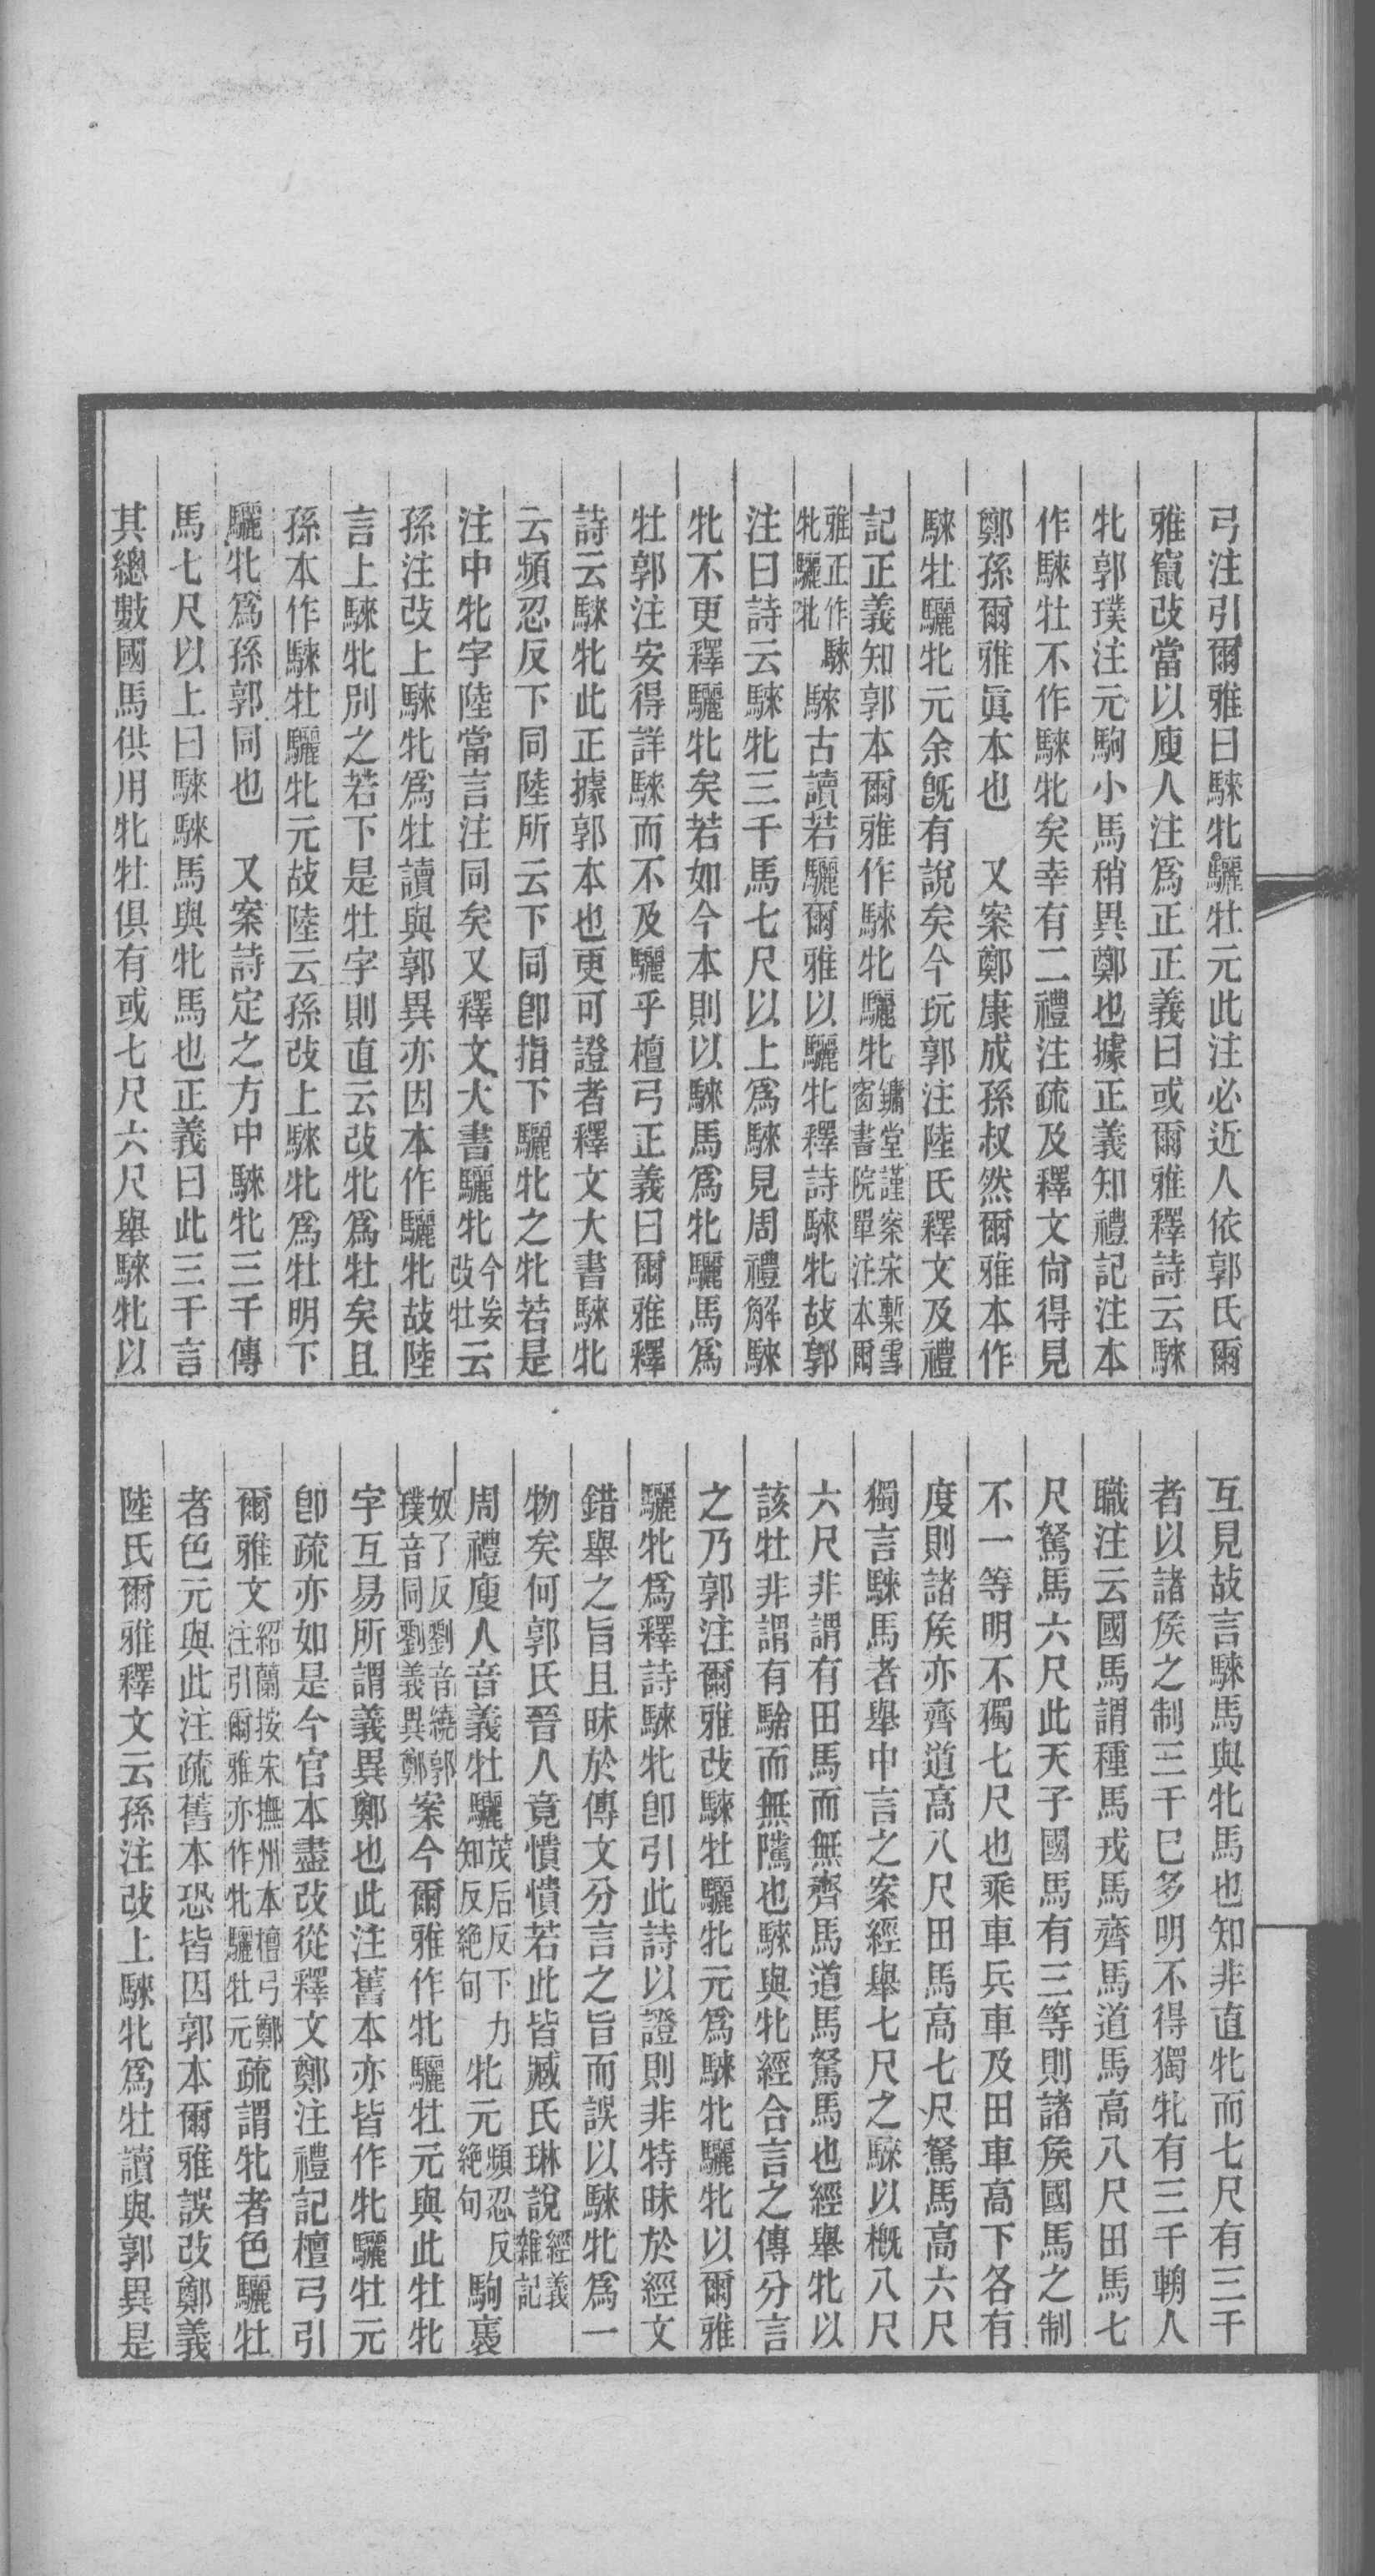 弓注引爾雅曰騋牝驪牡元此注必近人依郭氏爾
雅竄改當以廋人注爲正正義曰或爾雅釋詩云騋
牝郭璞注元駒小馬稍異鄭也據正義知禮記注本
作騋牡不作騋牝矣幸有二禮注疏及釋文尙得見
鄭孫爾雅眞本也　又案鄭康成孫叔然爾雅本作
騋牡驪牝元余旣有說矣今玩郭注陸氏釋文及禮
記正義知郭本爾雅作騋牝驪牝鏞堂謹案宋槧雪窗書院單注本爾
雅正作騋牝驪牝騋古讀若驪爾雅以驪牝釋詩騋牝故郭
注曰詩云騋牝三千馬七尺以上爲騋見周禮解騋
牝不更釋驪牝矣若如今本則以騋馬爲牝驪馬爲
牡郭注安得詳騋而不及驪乎檀弓正義曰爾雅釋
詩云騋牝此正據郭本也更可證者釋文大書騋牝
云頻忍反下同陸所云下同卽指下驪牝之牝若是
注中牝字陸當言注同矣又釋文大書驪牝今妄改牡云
孫注改上騋牝爲牡讀與郭異亦因本作驪牝故陸
言上騋牝別之若下是牡字則直云改牝爲牡矣且
孫本作騋牡驪牝元故陸云孫改上騋牝爲牡明下
驪牝爲孫郭同也　又案詩定之方中騋牝三千傳
馬七尺以上曰騋騋馬與牝馬也正義曰此三千言
其總數國馬供用牝牡俱有或七尺六尺舉騋牝以
互見故言騋馬與牝馬也知非直牝而七尺有三千
者以諸侯之制三千已多明不得獨牝有三千輈人
職注云國馬謂種馬戎馬齊馬道馬高八尺田馬七
尺駑馬六尺此天子國馬有三等則諸侯國馬之制
不一等明不獨七尺也乘車兵車及田車高下各有
度則諸侯亦齊道高八尺田馬高七尺駑馬高六尺
獨言騋馬者舉中言之案經舉七尺之騋以槪八尺
六尺非謂有田馬而無齊馬道馬駑馬也經舉牝以
該牡非謂有騇而無騭也騋與牝經合言之傳分言
之乃郭注爾雅改騋牡驪牝元爲騋牝驪牝以爾雅
驪牝爲釋詩騋牝卽引此詩以證則非特昧於經文
錯舉之旨且昧於傳文分言之旨而誤以騋牝爲一
物矣何郭氏晉人竟憒憒若此皆臧氏琳說經義雜記
周禮廋人音義牡驪茂后反下力知反絕句牝元頻忍反絕句駒褭
奴了反劉音繞郭璞音同劉義異鄭案今爾雅作牝驪牡元與此牡牝
字互易所謂義異鄭也此注舊本亦皆作牝驪牡元
卽疏亦如是今官本盡改從釋文鄭注禮記檀弓引
爾雅文紹蘭按宋撫州本檀弓鄭注引爾雅亦作牝驪牡元疏謂牝者色驪牡
者色元與此注疏舊本恐皆因郭本爾雅誤改鄭義
陸氏爾雅釋文云孫注改上騋牝爲牡讀與郭異是